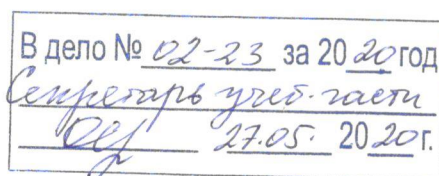 В дело № 02-23 за 2020 год
Секретарь учеб. части
27.05. 2020 г.